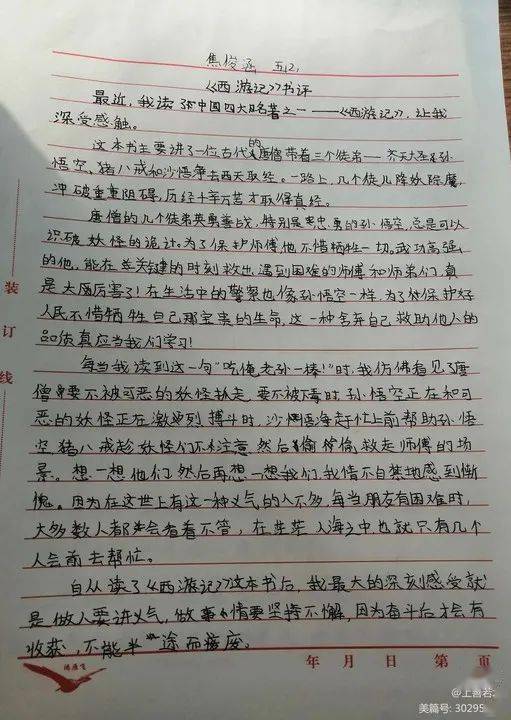 焦俊涵 五12,
《西游记》书评
最近,我读了中国四大名著之一——《西游记》,让我
深受感触。
这本书主要讲了一位古代的唐僧带着三个徒弟——齐天大圣孙
悟空、猪八戒和沙悟净去西天取经。一路上,几个徒儿降妖除魔,
冲破重重阻碍,历经千辛万苦才取得真经。
唐僧的几个徒弟英勇善战,特别是忠勇的孙悟空,总是可以
识破妖怪的诡计。为了保护师傅他不惜牺牲一切。武功高强
的他,能在关键的时刻救出遇到困难的师傅和师弟们,真
是太厉害了!在生活中的警察也像孙悟空一样,为了保护好
人民不惜牺牲自己那宝贵的生命,这一种舍弃自己救助他人的
品质真应当我们学习!
每当我读到这一句"吃俺老孙一棒!"时,我仿佛看见了唐
僧要不被可恶的妖怪抓走,要不被下毒时,孙悟空正在和可
恶的妖怪正在激烈搏斗时,沙悟净赶忙上前帮助孙悟
空,猪八戒趁妖怪们不注意,然后偷偷救走师傅的场
景。想一想他们,然后再想一想我们,我情不自禁地感到惭
愧。因为在这世上有这一种义气的人不多,每当朋友有困难时,
大多数人都会看不管,在茫茫人海之中,也就只有几个
人会前去帮忙。
自从读了《西游记》这本书后,我最大的深刻感受就
是做人要讲义气,做事情要坚持不懈,因为奋斗后才会有
收获,不能半途而废。
装
订
线
鸿雁飞
年 月 日 第 页
@上善若
美篇号: 30295